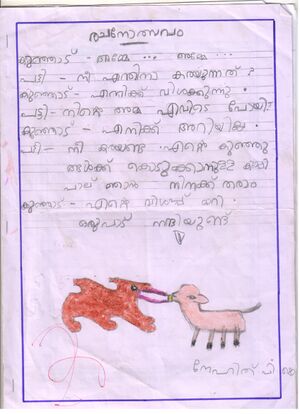 രചനോത്സവം
കുഞ്ഞാട് - അമ്മേ ... അമ്മേ ...
പട്ടി - നീ എന്തിനാ കരയുന്നത് ?
കുഞ്ഞാട് - എനിക്ക് വിശക്കുന്നു .
പട്ടി - നിന്റെ അമ്മ എവിടെ പോയി?
കുഞ്ഞാട് - എനിക്ക് അറിയില്ല .
പട്ടി - നീ കരയണ്ട എന്റെ കുഞ്ഞു
ങ്ങൾക്ക് കൊടുക്കാനുള്ള
പാല് ഞാൻ നിനക്ക് തരാം
കുഞ്ഞാട് - എന്റെ വിശപ്പ് മാറി .
ഒരുപാട് നന്ദിയുണ്ട്
സ്നേഹിത് പി കെ